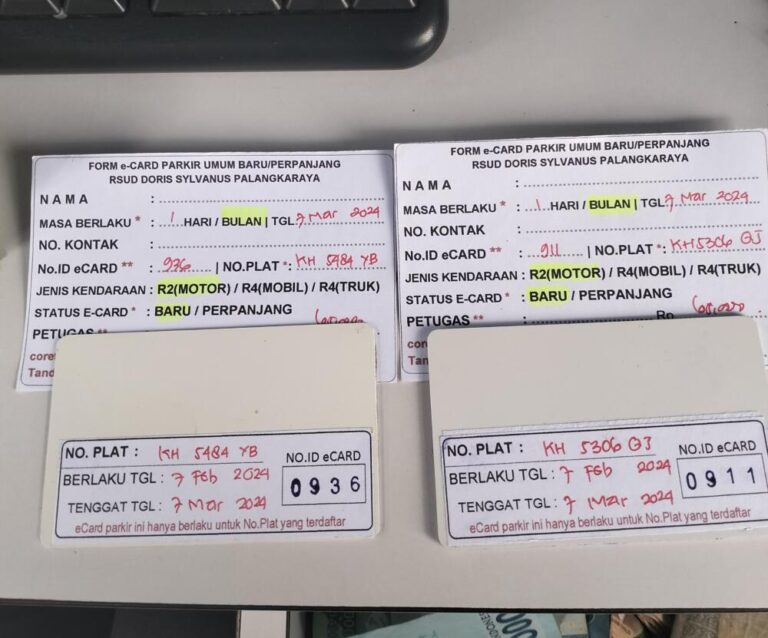 FORM e-CARD PARKIR UMUM BARU/PERPANJANG
RSUD DORIS SYLVANUS PALANGKARAYA
N A M A :
MASA BERLAKU * : 1 HARI / BULAN | TGL 7 Mar 2024
NO. KONTAK :
No.ID eCARD ** : 936 | NO.PLAT *: KH 5484 YB
JENIS KENDARAAN : R2(MOTOR) / R4(MOBIL) / R4(TRUK)
STATUS E-CARD * : BARU / PERPANJANG
PETUGAS
core
Tand
NO. PLAT : KH 5484 YB
BERLAKU TGL : 7 Feb 2024
TENGGAT TGL : 7 Mar 2024
NO.ID eCARD
0936
eCard parkir ini hanya berlaku untuk No.Plat yang terdaftar
FORM e-CARD PARKIR UMUM BARU/PERPANJANG
RSUD DORIS SYLVANUS PALANGKARAYA
N A M A :
MASA BERLAKU * : 1 HARI / BULAN | TGL 7 Mar 2024
NO. KONTAK :
No.ID eCARD ** : 911 | NO.PLAT *: KH 5306 GJ
JENIS KENDARAAN : R2(MOTOR) / R4(MOBIL) / R4(TRUK)
STATUS E-CARD * : BARU / PERPANJANG
PETUGAS ** : Rp
core
Tand
NO. PLAT : KH 5306 GJ
BERLAKU TGL : 7 Feb 2024
TENGGAT TGL : 7 Mar 2024
NO.ID eCARD
0911
eCard parkir ini hanya berlaku untuk No.Plat yang terdaftar